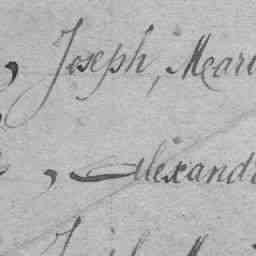 , Joseph, Mear
, Alexand